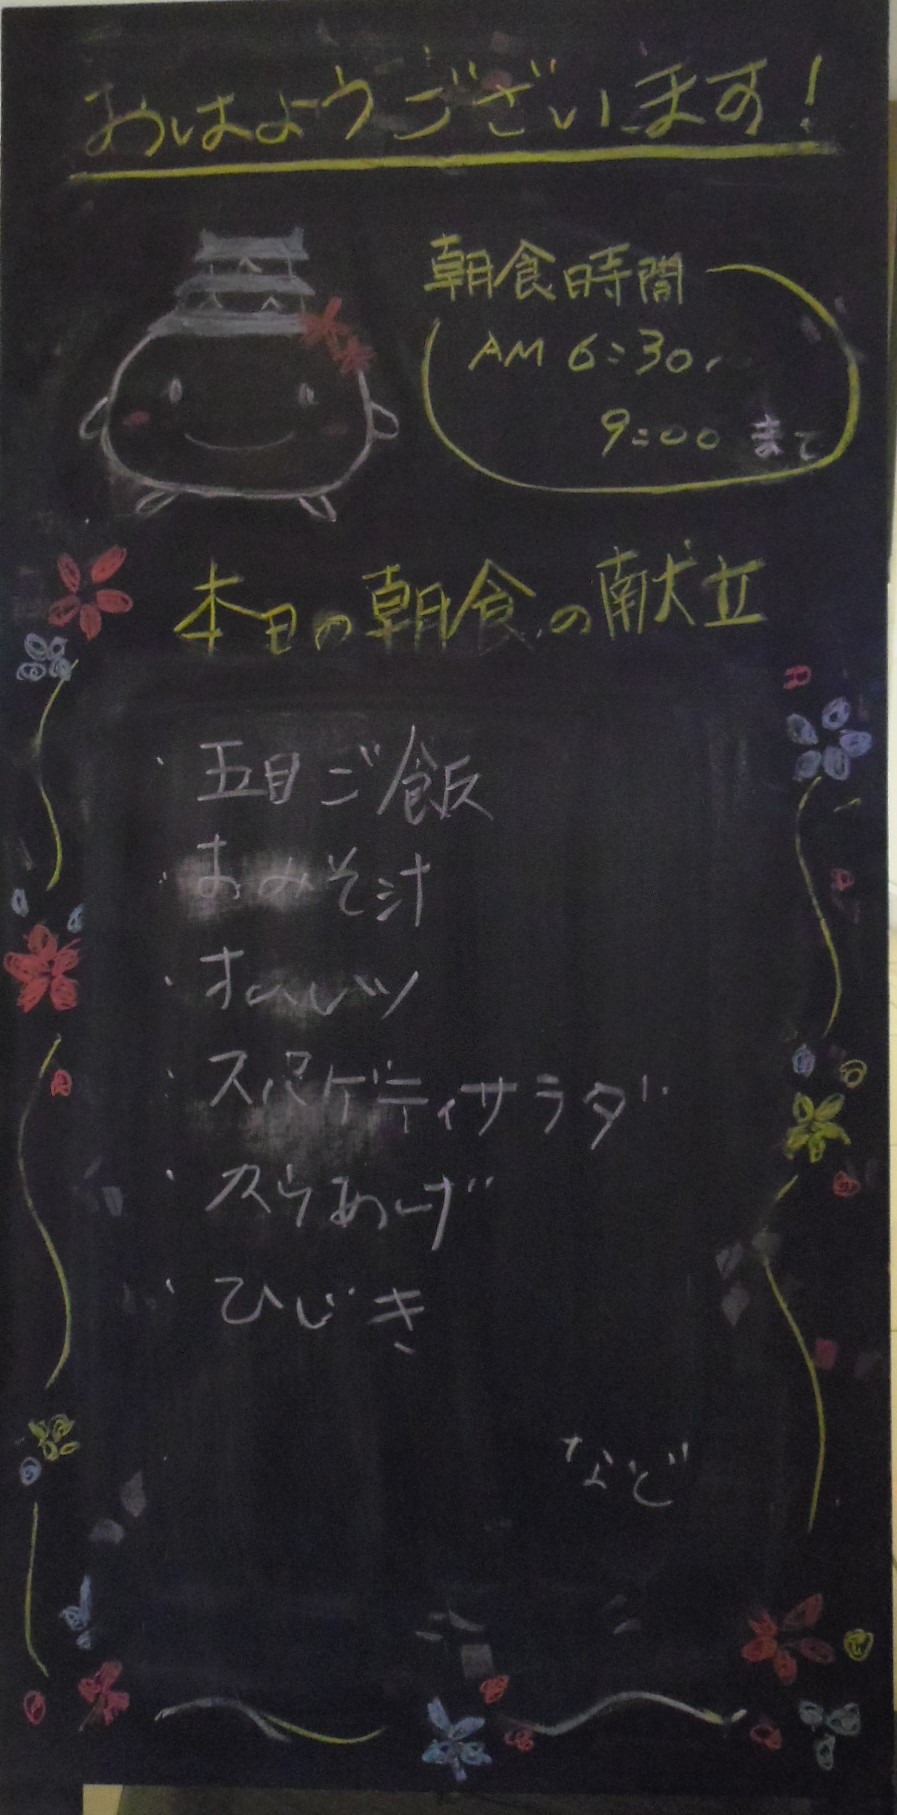 おはようございます！
朝食時間
AM 6:30
9:00 まで
本日の朝食の献立
・五目ご飯
・おみそ汁
・オムレツ
・スパゲティサラダ
・ひじき
など